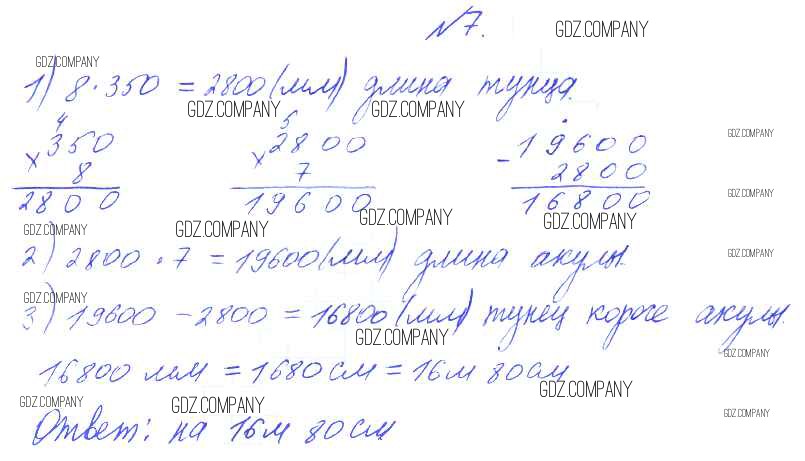 №7. GDZ.COMPANY
GDZ.COMPANY
1) 8·350 = 2800 (мм) длина тунца.
GDZ.COMPANY GDZ.COMPANY
4 5
×350 ×2800 -19600 GDZ.COMPANY
8 7 2800
2800 19600 16800 GDZ.COMPANY
GDZ.COMPANY GDZ.COMPANY GDZ.COMPANY GDZ.COMPANY
2) 2800·7 = 19600 (мм) длина акулы. GDZ.COMPANY
GDZ.COMPANY
3) 19600 - 2800 = 16800 (мм) тунец короче акулы.
GDZ.COMPANY GDZ.COMPANY
16800 мм = 1680 см = 16м 80см
GDZ.COMPANY GDZ.COMPANY GDZ.COMPANY GDZ.COMPANY
Ответ: на 16м 80см